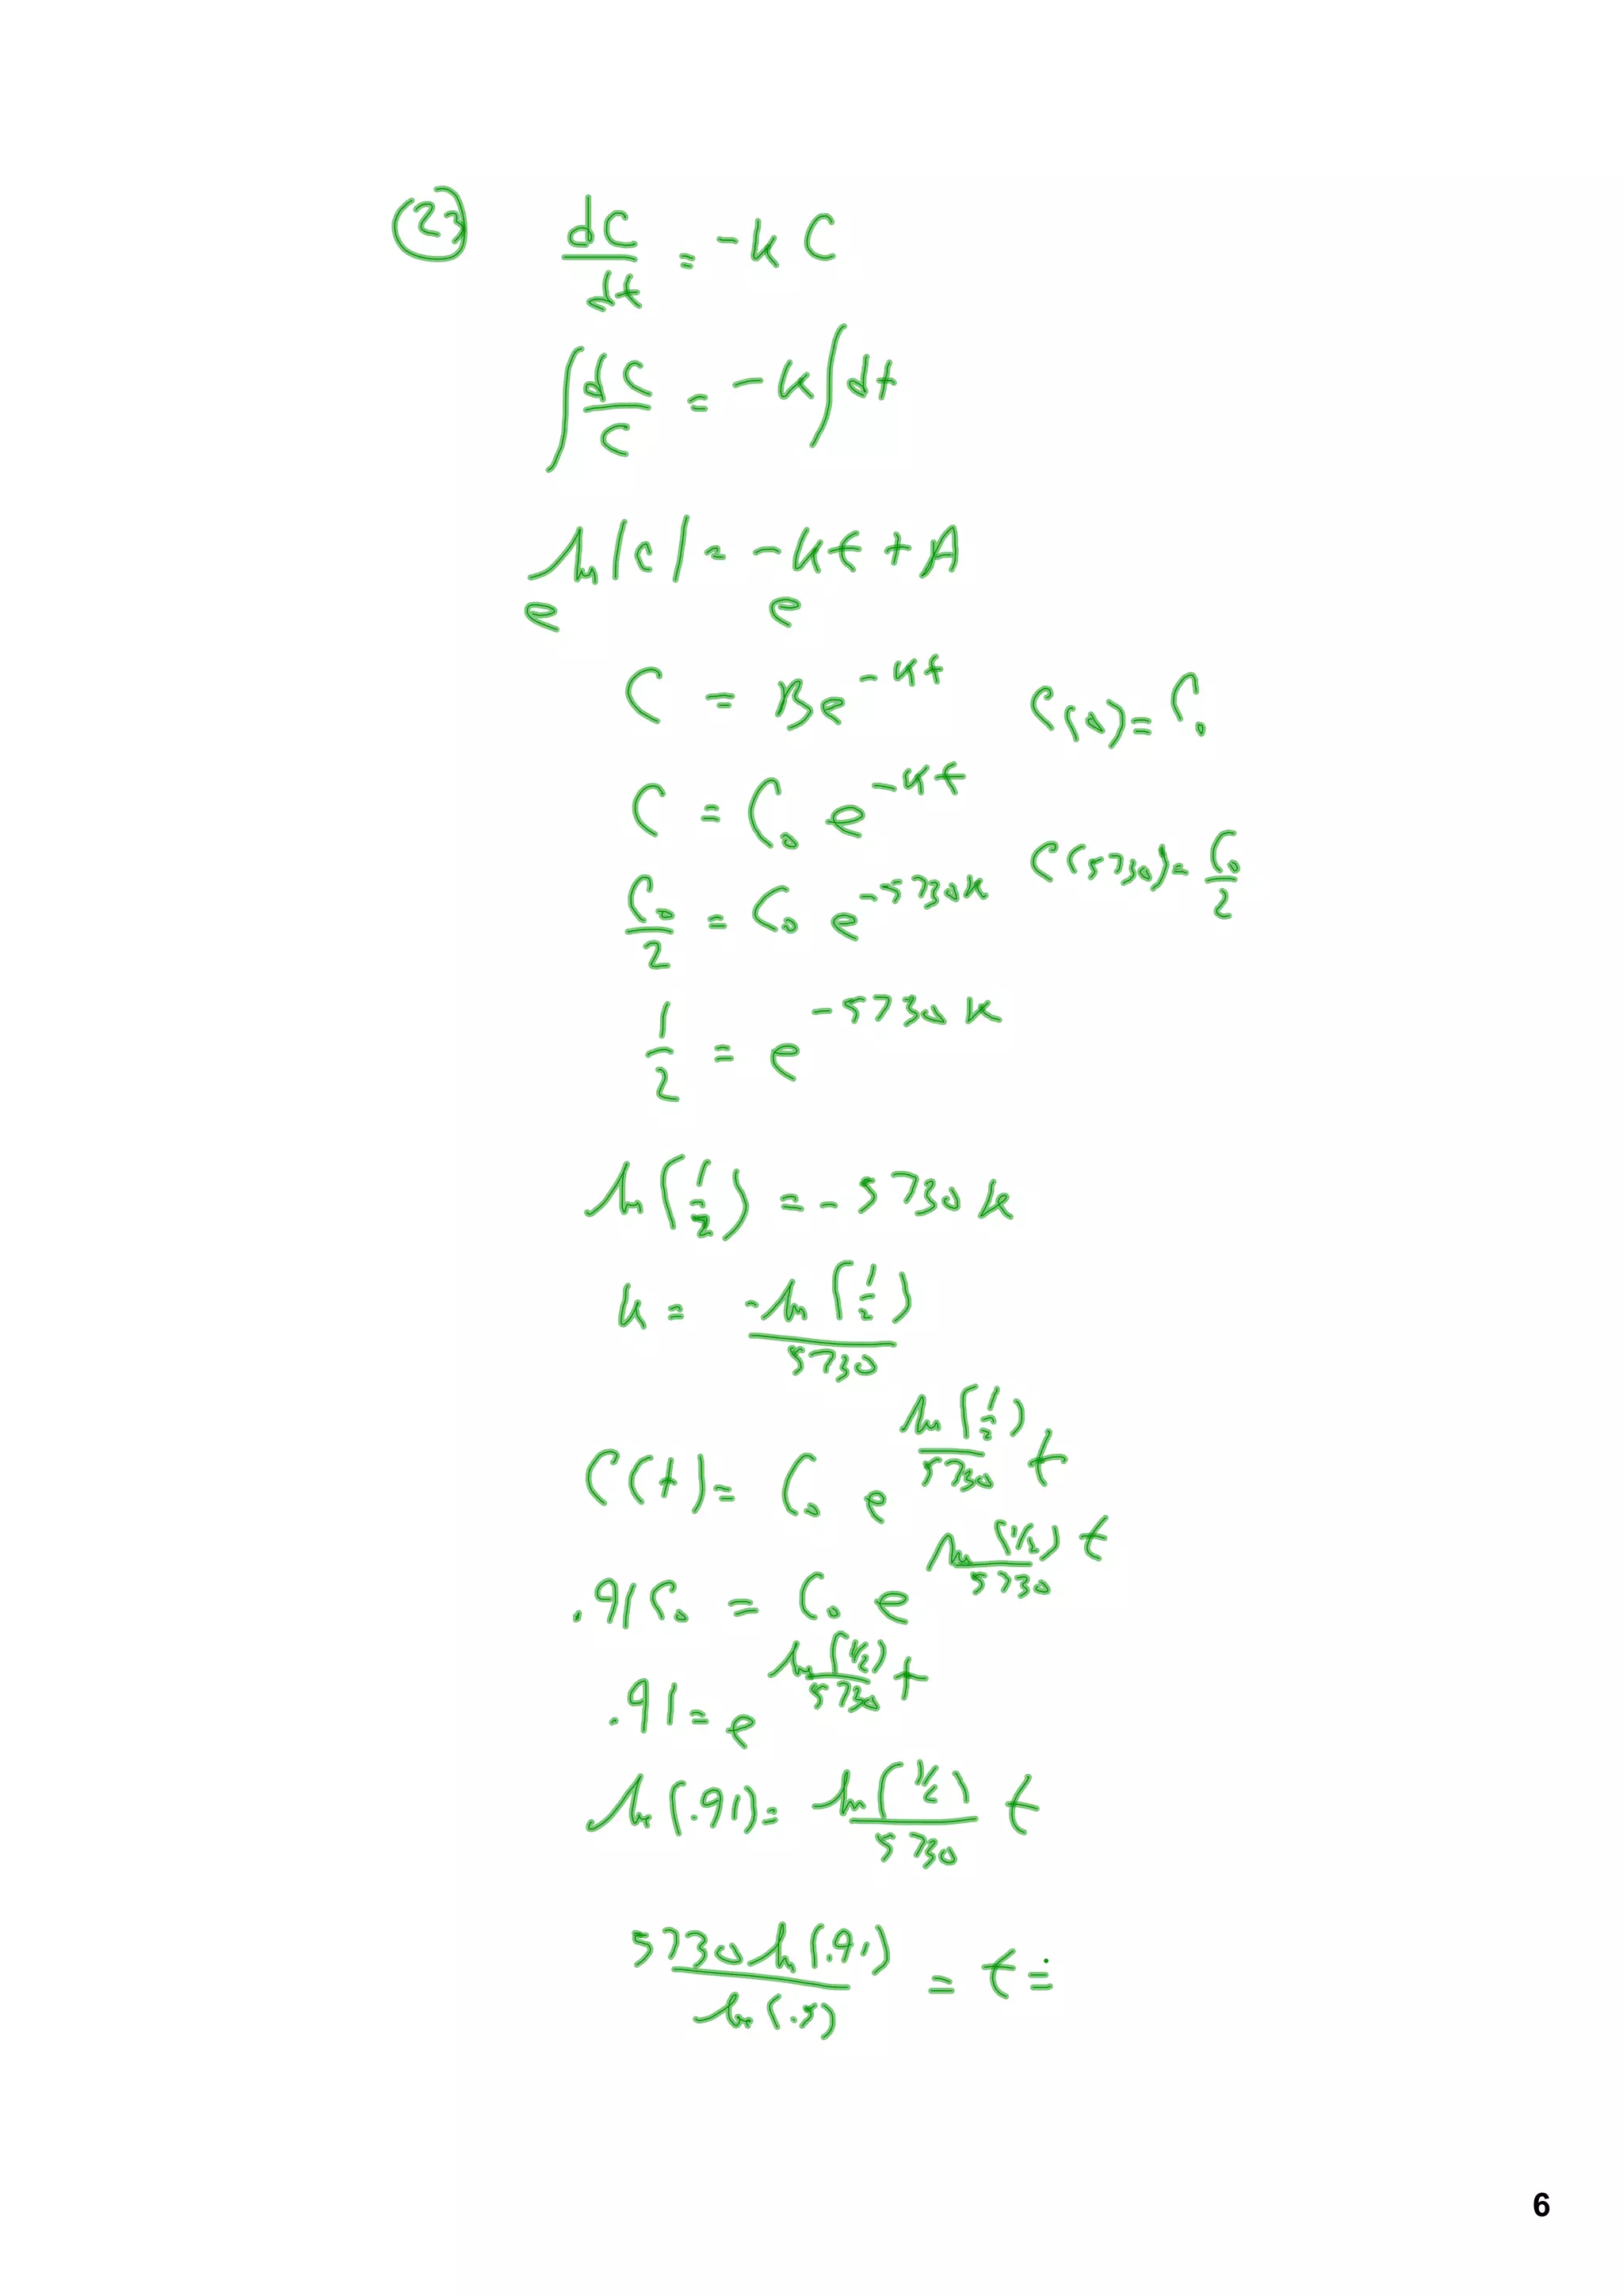 23 dC/dt = -kC
∫ dC/C = -k∫dt
ln|c| = -kt + A
e e
C = Be^(-kt) C(0) = C₀
C = C₀ e^(-kt)
C(5730) = C₀/2
C₀/2 = C₀ e^(-5730k)
1/2 = e^(-5730k)
ln(1/2) = -5730k
k = -ln(1/2)/5730
C(t) = C₀ e^(ln(1/2)/5730 t)
.91C₀ = C₀ e^(ln(1/2)/5730 t)
.91 = e^(ln(1/2)/5730 t)
ln(.91) = ln(1/2)/5730 t
5730 ln(.91)/ln(.5) = t =
6